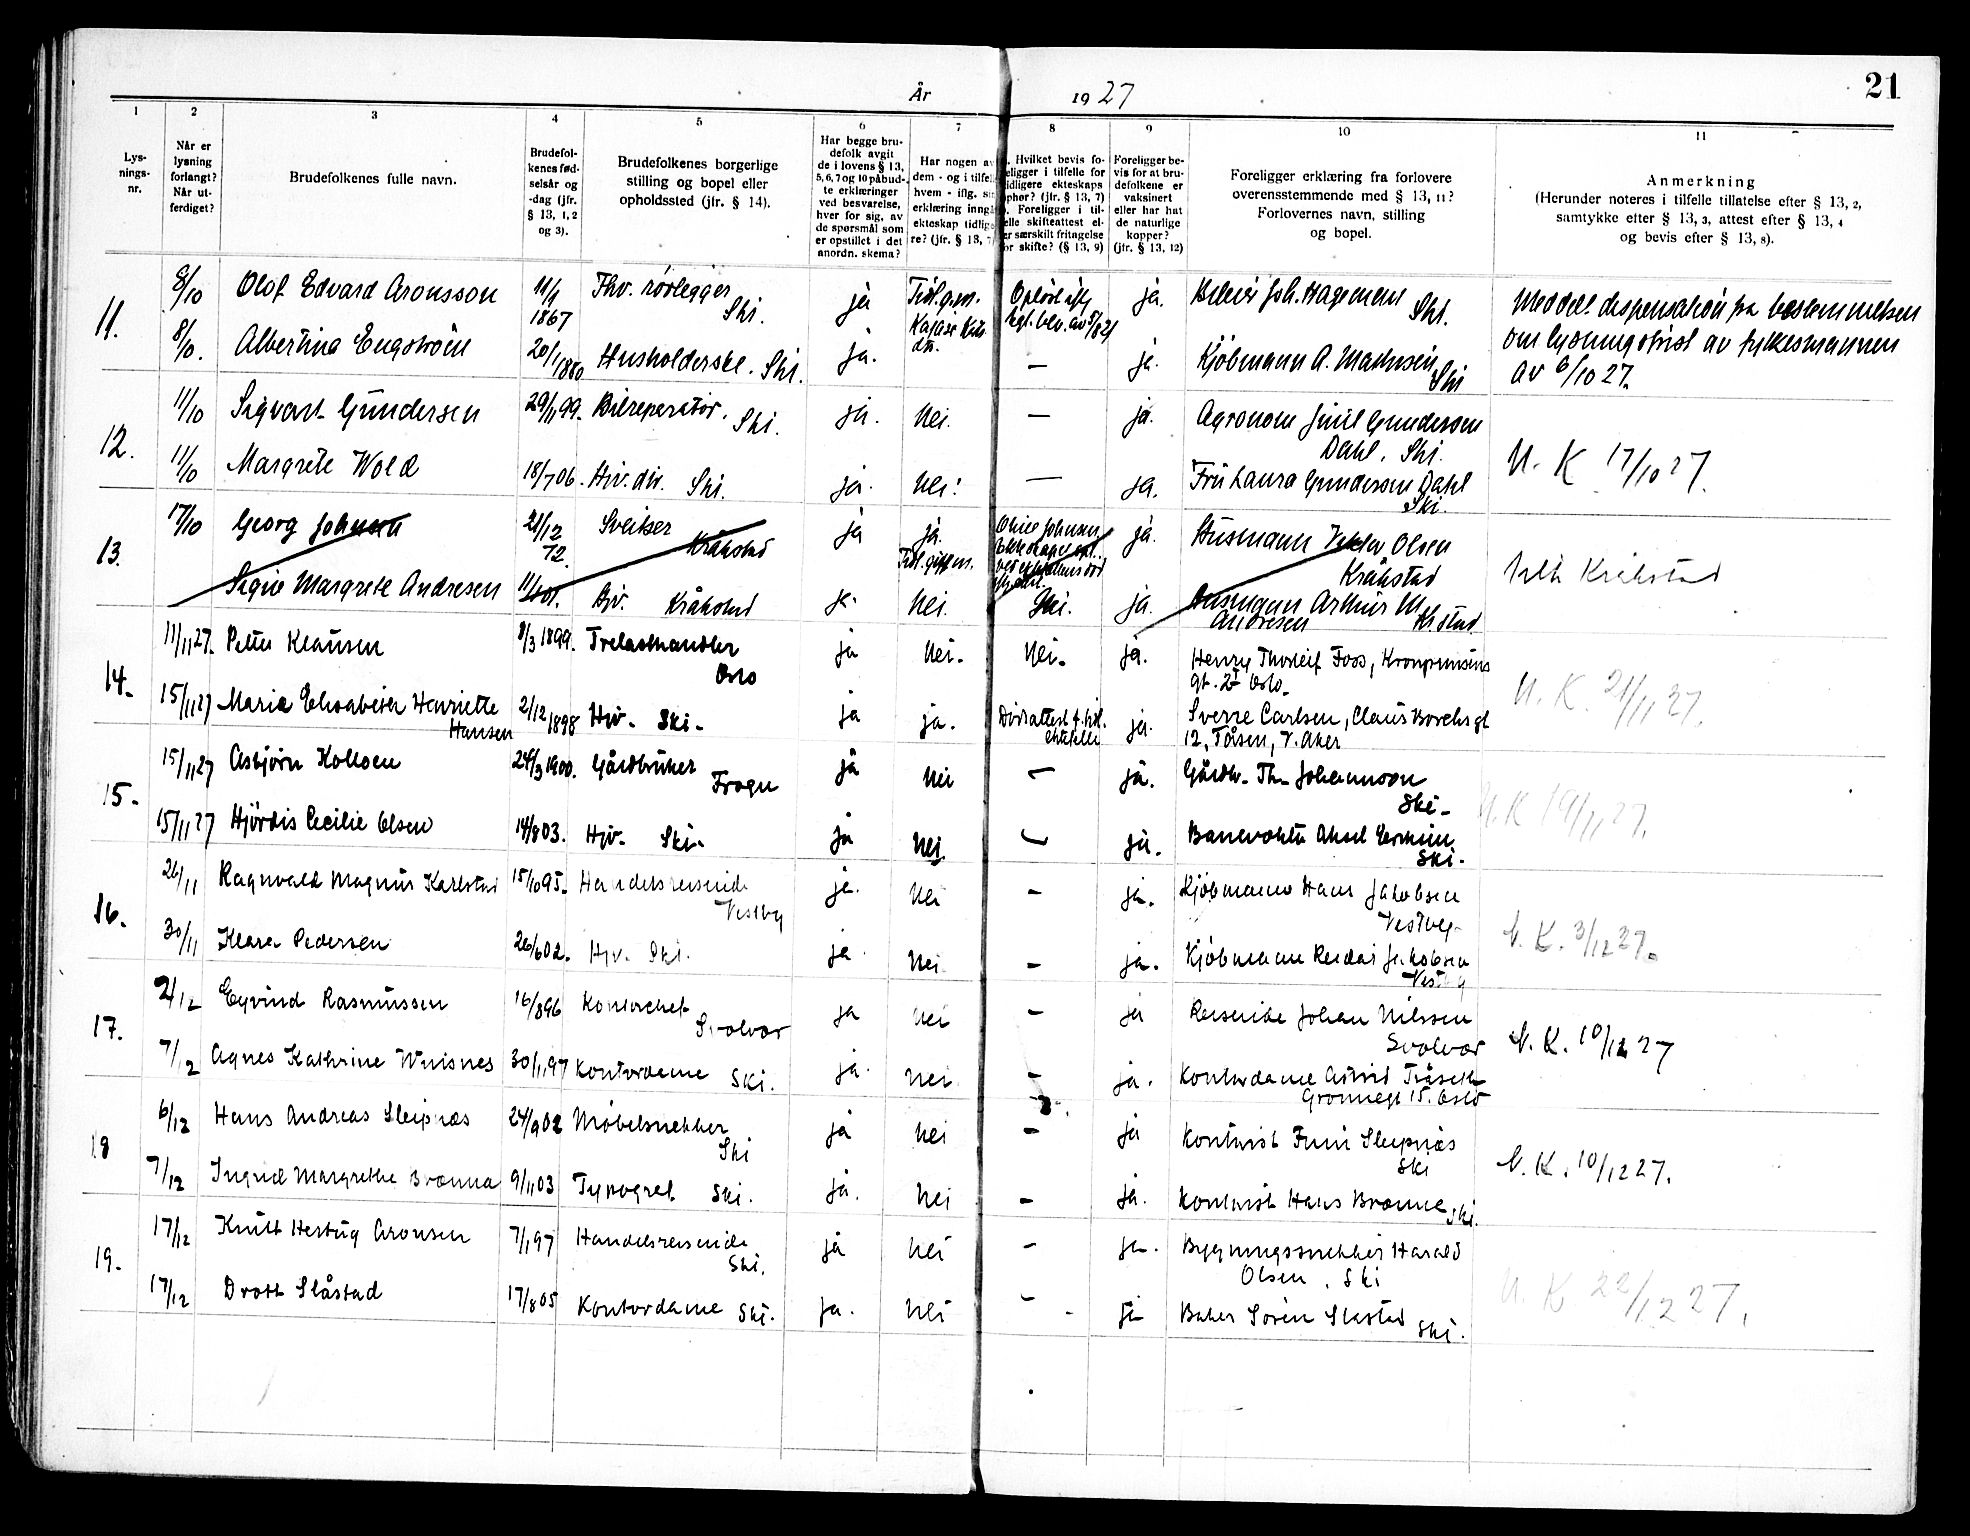 21
År 1927
1 2 3 4 5 6 7 8 9 10 11
Lysningsnr.
Når er lysning forlangt? Når utferdiget?
Brudefolkenes fulle navn.
Brudefolkenes fødselsår og -dag (jfr. § 13, 1, 2 og 3).
Brudefolkenes borgerlige stilling og bopel eller opholdssted (jfr. § 14).
Har begge brudefolk avgit de i lovens § 13, 5, 6, 7 og 10 påbudte erklæringer ved besvarelse, hver for sig, av de spørsmål som er opstillet i det anordn. skema?
Har nogen av dem - og i tilfelle hvem - iflg. sin erklæring inngått ekteskap tidligere? (jfr. § 13, 7)
Hvilket bevis foreligger i tilfelle for tidligere ekteskaps ophør? (jfr. § 13, 7) Foreligger i tilfelle skifteattest eller særskilt fritagelse for skifte? (§ 13, 9)
Foreligger bevis for at brudefolkene er vaksinert eller har hat de naturlige kopper? (jfr. § 13, 12)
Foreligger erklæring fra forlovere overensstemmende med § 13, 11? Forlovernes navn, stilling og bopel.
Anmerkning
(Herunder noteres i tilfelle tillatelse efter § 13, 2, samtykke efter § 13, 3, attest efter § 13, 4 og bevis efter § 13, 8).
11. 8/10 Olof Edvard Aronsson 11/9 1867 Fhv. rørlegger Ski. ja ja. Joh. Hagemann Ski.
8/10. Albertina Engström 20/1 1880 Husholderske. Ski. ja. — ja. Kjöbmann A. Mathisen Ski
Meddelt dispensation fra bestemmelsen
om lysningsfrist av fylkesmannen
av 6/10 27.
12. 11/10 Sigvart Gundersen 29/1 99. Bilreperatör. Ski. ja. Nei. — ja. Agronom Gundersen
Dahl. Ski.
11/10 Margrete Wold 18/7 06. Hv. div. Ski. ja. Nei. — ja. Fru Laura Gundersen Dahl
Ski.
N. K 17/10 27.
13. 17/10 Georg Johnsen 21/12 72. Sveitser Kråkstad ja ja. ja. Husmann Olsen
Kråkstad
Signe Margrete Andresen Hv. Kråkstad ja. Nei. Nei. ja. Husmann Arthur M
Andresen Krstad.
Kråkstad
14. 11/11 27. Petter Klausen 8/3 1899. Trelasthandler Oslo ja Nei. Nei. ja. Henry Thorleif Foss, Kronprinsens
gt. Oslo.
15/11 27 Marie Elisabeth Henriette Hansen 2/12 1898 Hv. Ski. ja ja. Dødsattest f. tidl. ektefelle ja. Sverre Carlsen, Claus Borchs gt
12, Tåsen, V. Aker
N. K. 21/11 27.
15. 15/11 27 Asbjørn Kollsen 24/3 1900. Gårdbruker Frogn ja Nei — ja. Gårdbr. Th. Johannsen
Ski.
15/11 27 Hjördis Cecilie Olsen 14/8 03. Hv. Ski. ja Nei. — ja. Banevokter Aksel
Ski.
N. K 19/11 27.
16. 26/11 Ragnvald Magnus Karlstad 15/10 95. Handelsreisende Vestby ja. Nei — ja. Kjöbmann Hans Jakobsen
Vestby.
30/11 Klara Pedersen 26/6 02. Hv. Ski. ja. Nei. — ja. Kjöbmann Reidar Jakobsen
Vestby
N. K. 3/12 27.
17. 2/12 Eyvind Rasmussen 16/8 96 Kontorchef Svolvær ja Nei — ja Reisende Johan Nilssen
Svolvær
7/12 Agnes Kathrine 30/11 97 Kontordame Ski. ja. Nei — ja. Kontordame Astrid
Grönnegt 15. Oslo
N. K. 10/12 27
18 6/12 Hans Andreas Sleipnæs 24/9 02 Møbelsnekker Ski ja Nei — ja Kontorist Finn Sleipnæs
Ski
7/12 Ingrid Margrethe Brænna 9/11 03 Typograf Ski. ja. Nei — ja. Kontorist Hans Brænne Ski.
N. K. 10/12 27.
19. 17/12 Knut Hertug Aronsen 7/1 97 Handelsreisende Ski. ja Nei — ja. Bygningssnekker Harald
Olsen, Ski
17/12 Drott Slåstad 17/8 05 Kontordame Ski. ja. Nei — ja Baker Sören Slåstad Ski.
N. K 22/12 27.